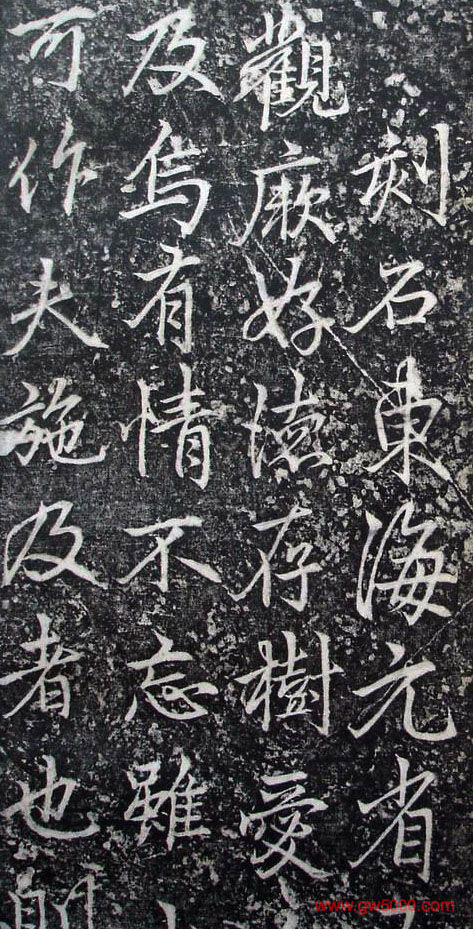 刻石東海元省
觀厥好德存樹愛
及烏有情不忘雖
可作夫施及者也
www.gw5000.com